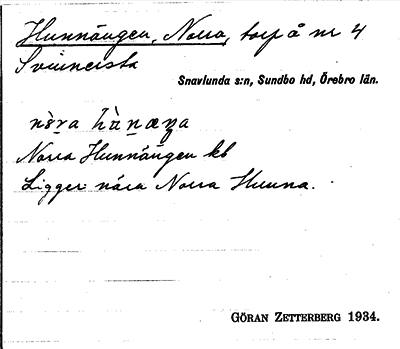 Hunnängen, Norra, torp å nr 4
Svinnersta
Snavlunda s:n, Sundbo hd, Örebro län.
Norra Hunnängen kb
Ligger nära Norra Hunna.
GÖRAN ZETTERBERG 1934.